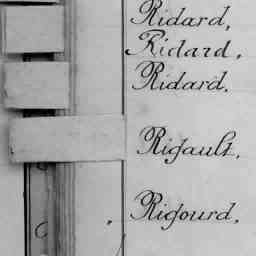 Ridard,
Ridard,
Ridard.
Rigault,
Rigourd,